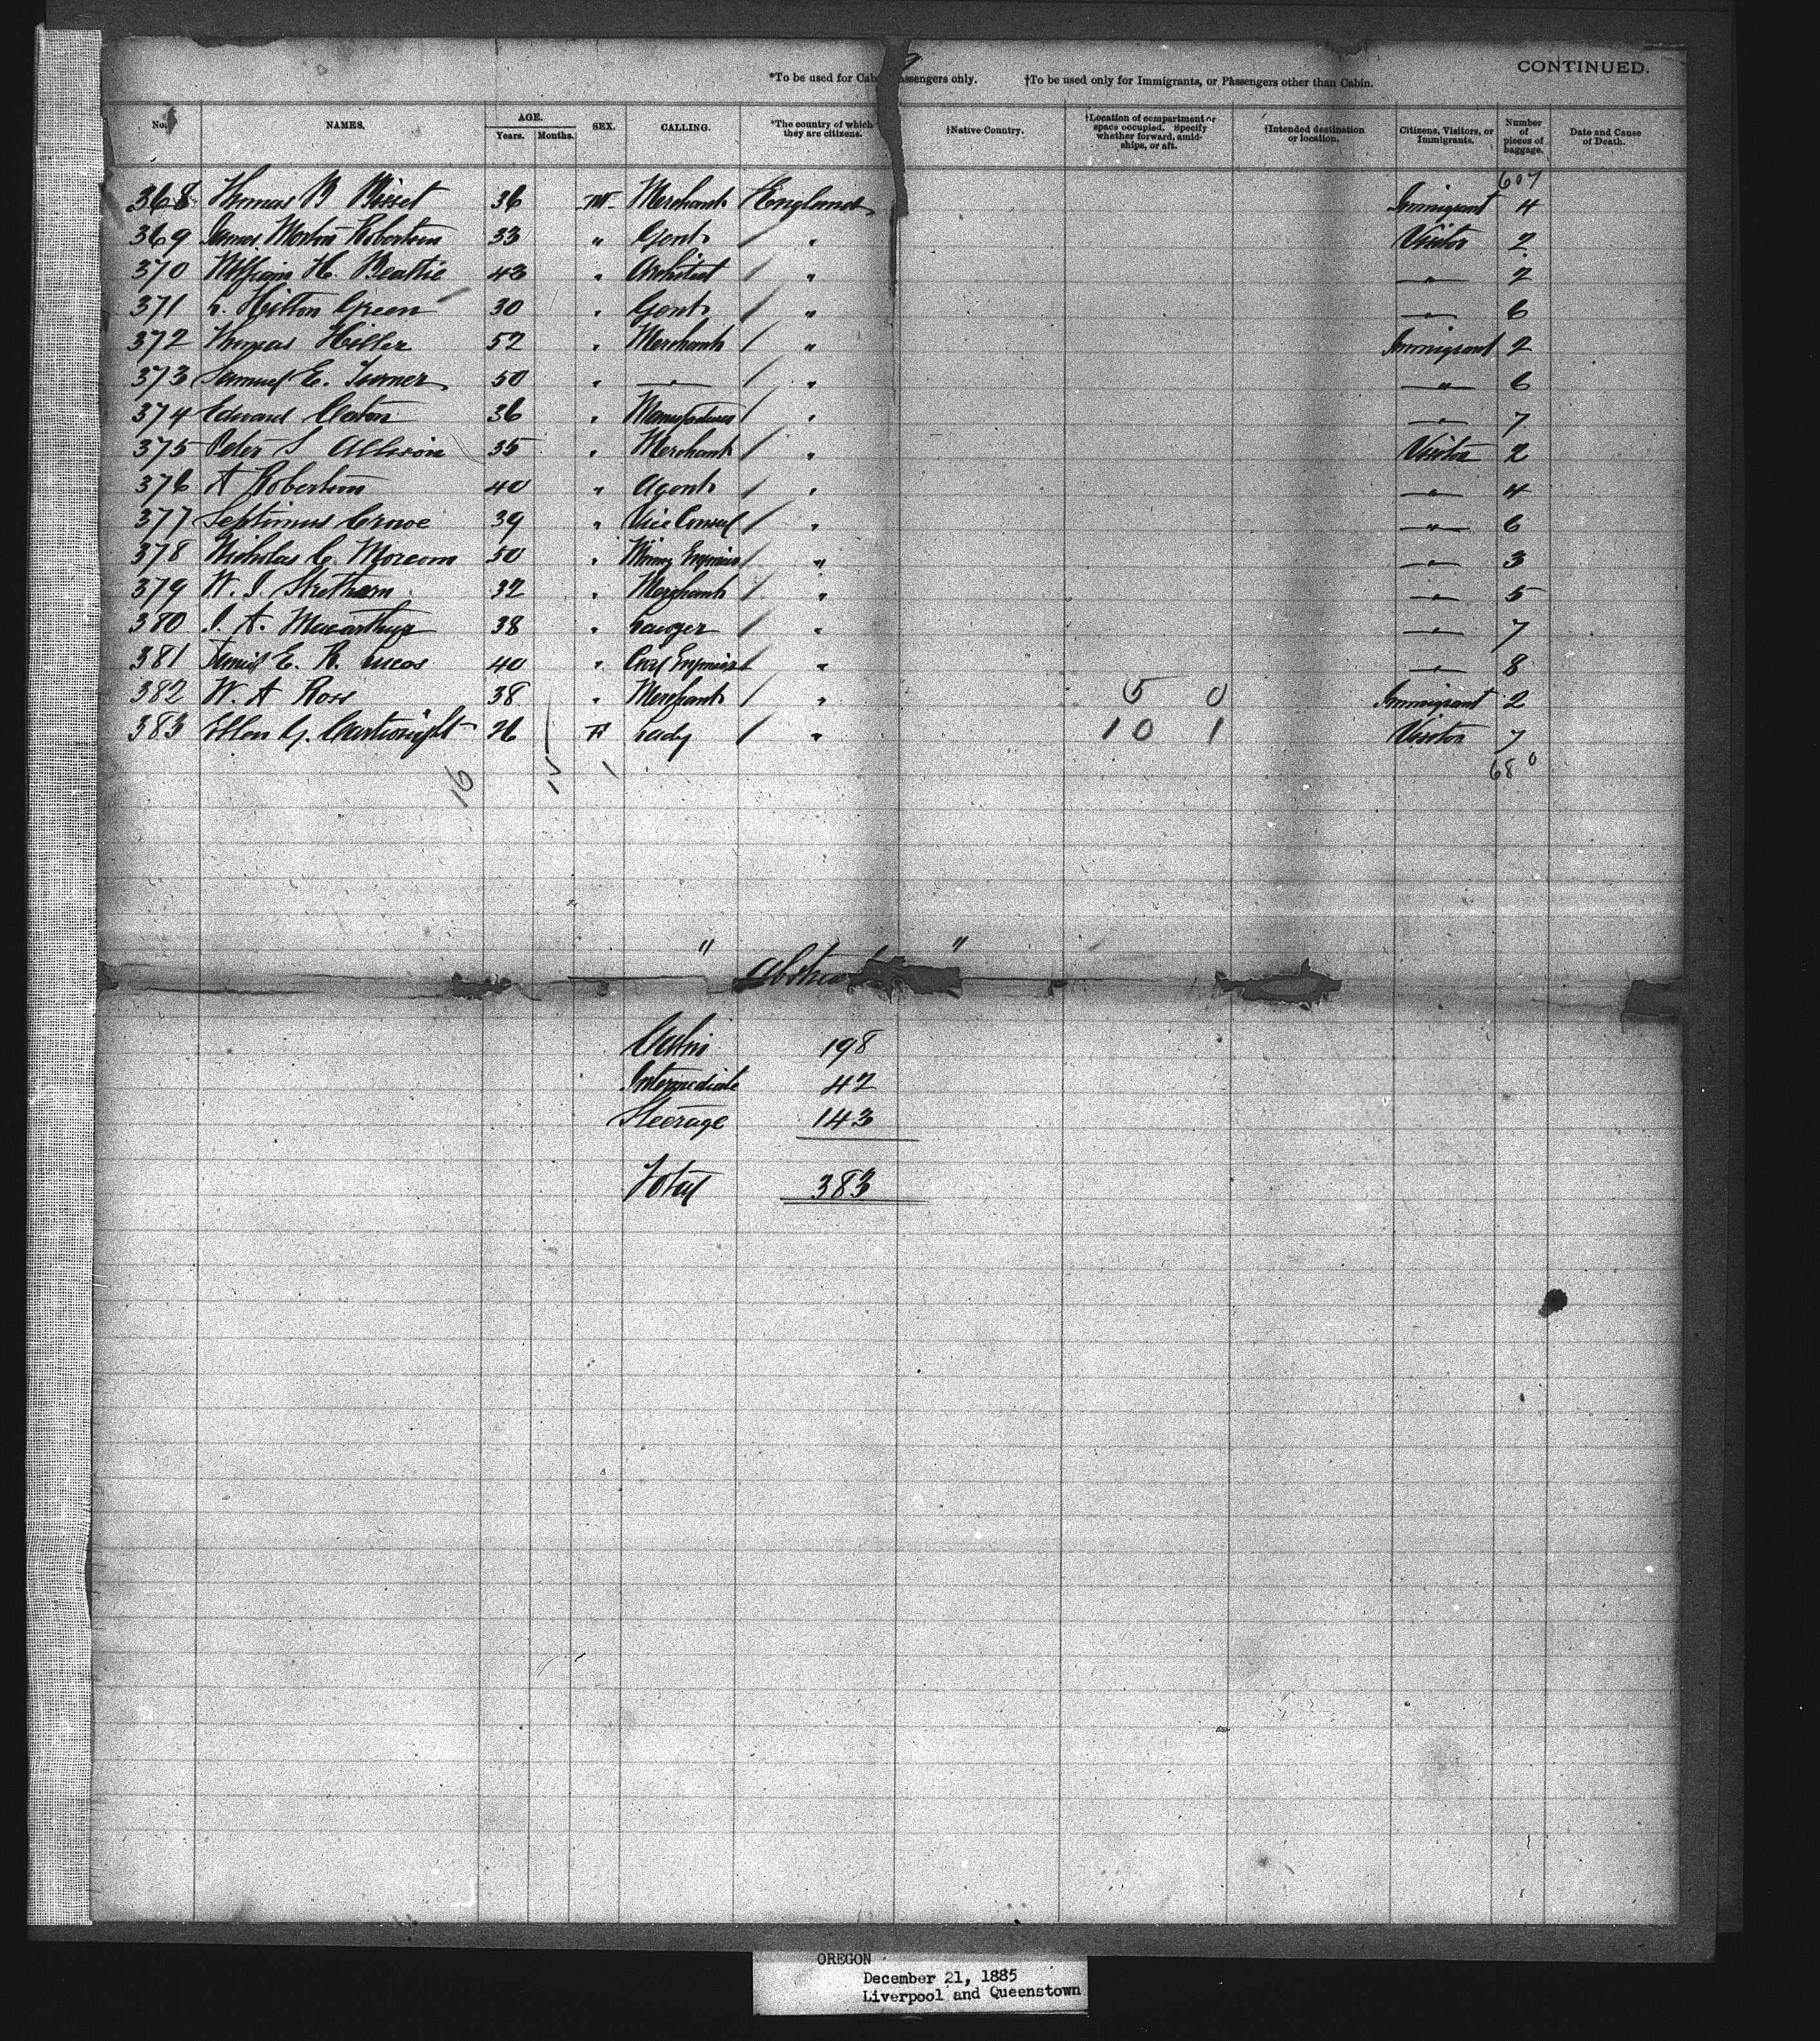 CONTINUED.
*To be used for Cab assengers only. †To be used only for Immigrants, or Passengers other than Cabin.
No. NAMES. AGE. Years. Months. SEX. CALLING. *The country of which they are citizens. †Native Country. †Location of compartment or space occupied. Specify whether forward, amidships, or aft. †Intended destination or location. Citizens, Visitors, or Immigrants. Number of pieces of baggage. Date and Cause of Death.
607
368 Thomas B Bisset 36 M Merchant England Immigrant 4
369 James Morton Robertson 33 " Gent / " Visitor 2
370 William H. Beattie 43 " Architect / " " 2
371 Hilton Green 30 " Gent / " " 6
372 Thomas Hiller 52 " Merchant / " Immigrant 2
373 Samuel E. Turner 50 " " / " " 6
374 Edward Caton 36 " Manufacturer / " " 7
375 Peter S Allison 35 " Merchant / " Visitor 2
376 A Robertson 40 " Agent / " " 4
377 Septimus Crowe 39 " Vice Consul / " " 6
378 Nicholas C. Morcom 50 " Mining Engineer / " " 3
379 W. J. 32 " Merchant / " " 5
380 J. A. Macarthur 38 " / " " 7
381 E. R. Lucas 40 " Civil Engineer / " " 8
382 W. A Ross 38 " Merchant / " 5 0 Immigrant 2
383 Ellen G. Cartwright 26 F Lady / " 10 1 Visitor 7
16 15 1 680
" Abstrac "
Cabin 198
Intermediate 42
Steerage 143
Total 383
OREGON
December 21, 1885
Liverpool and Queenstown